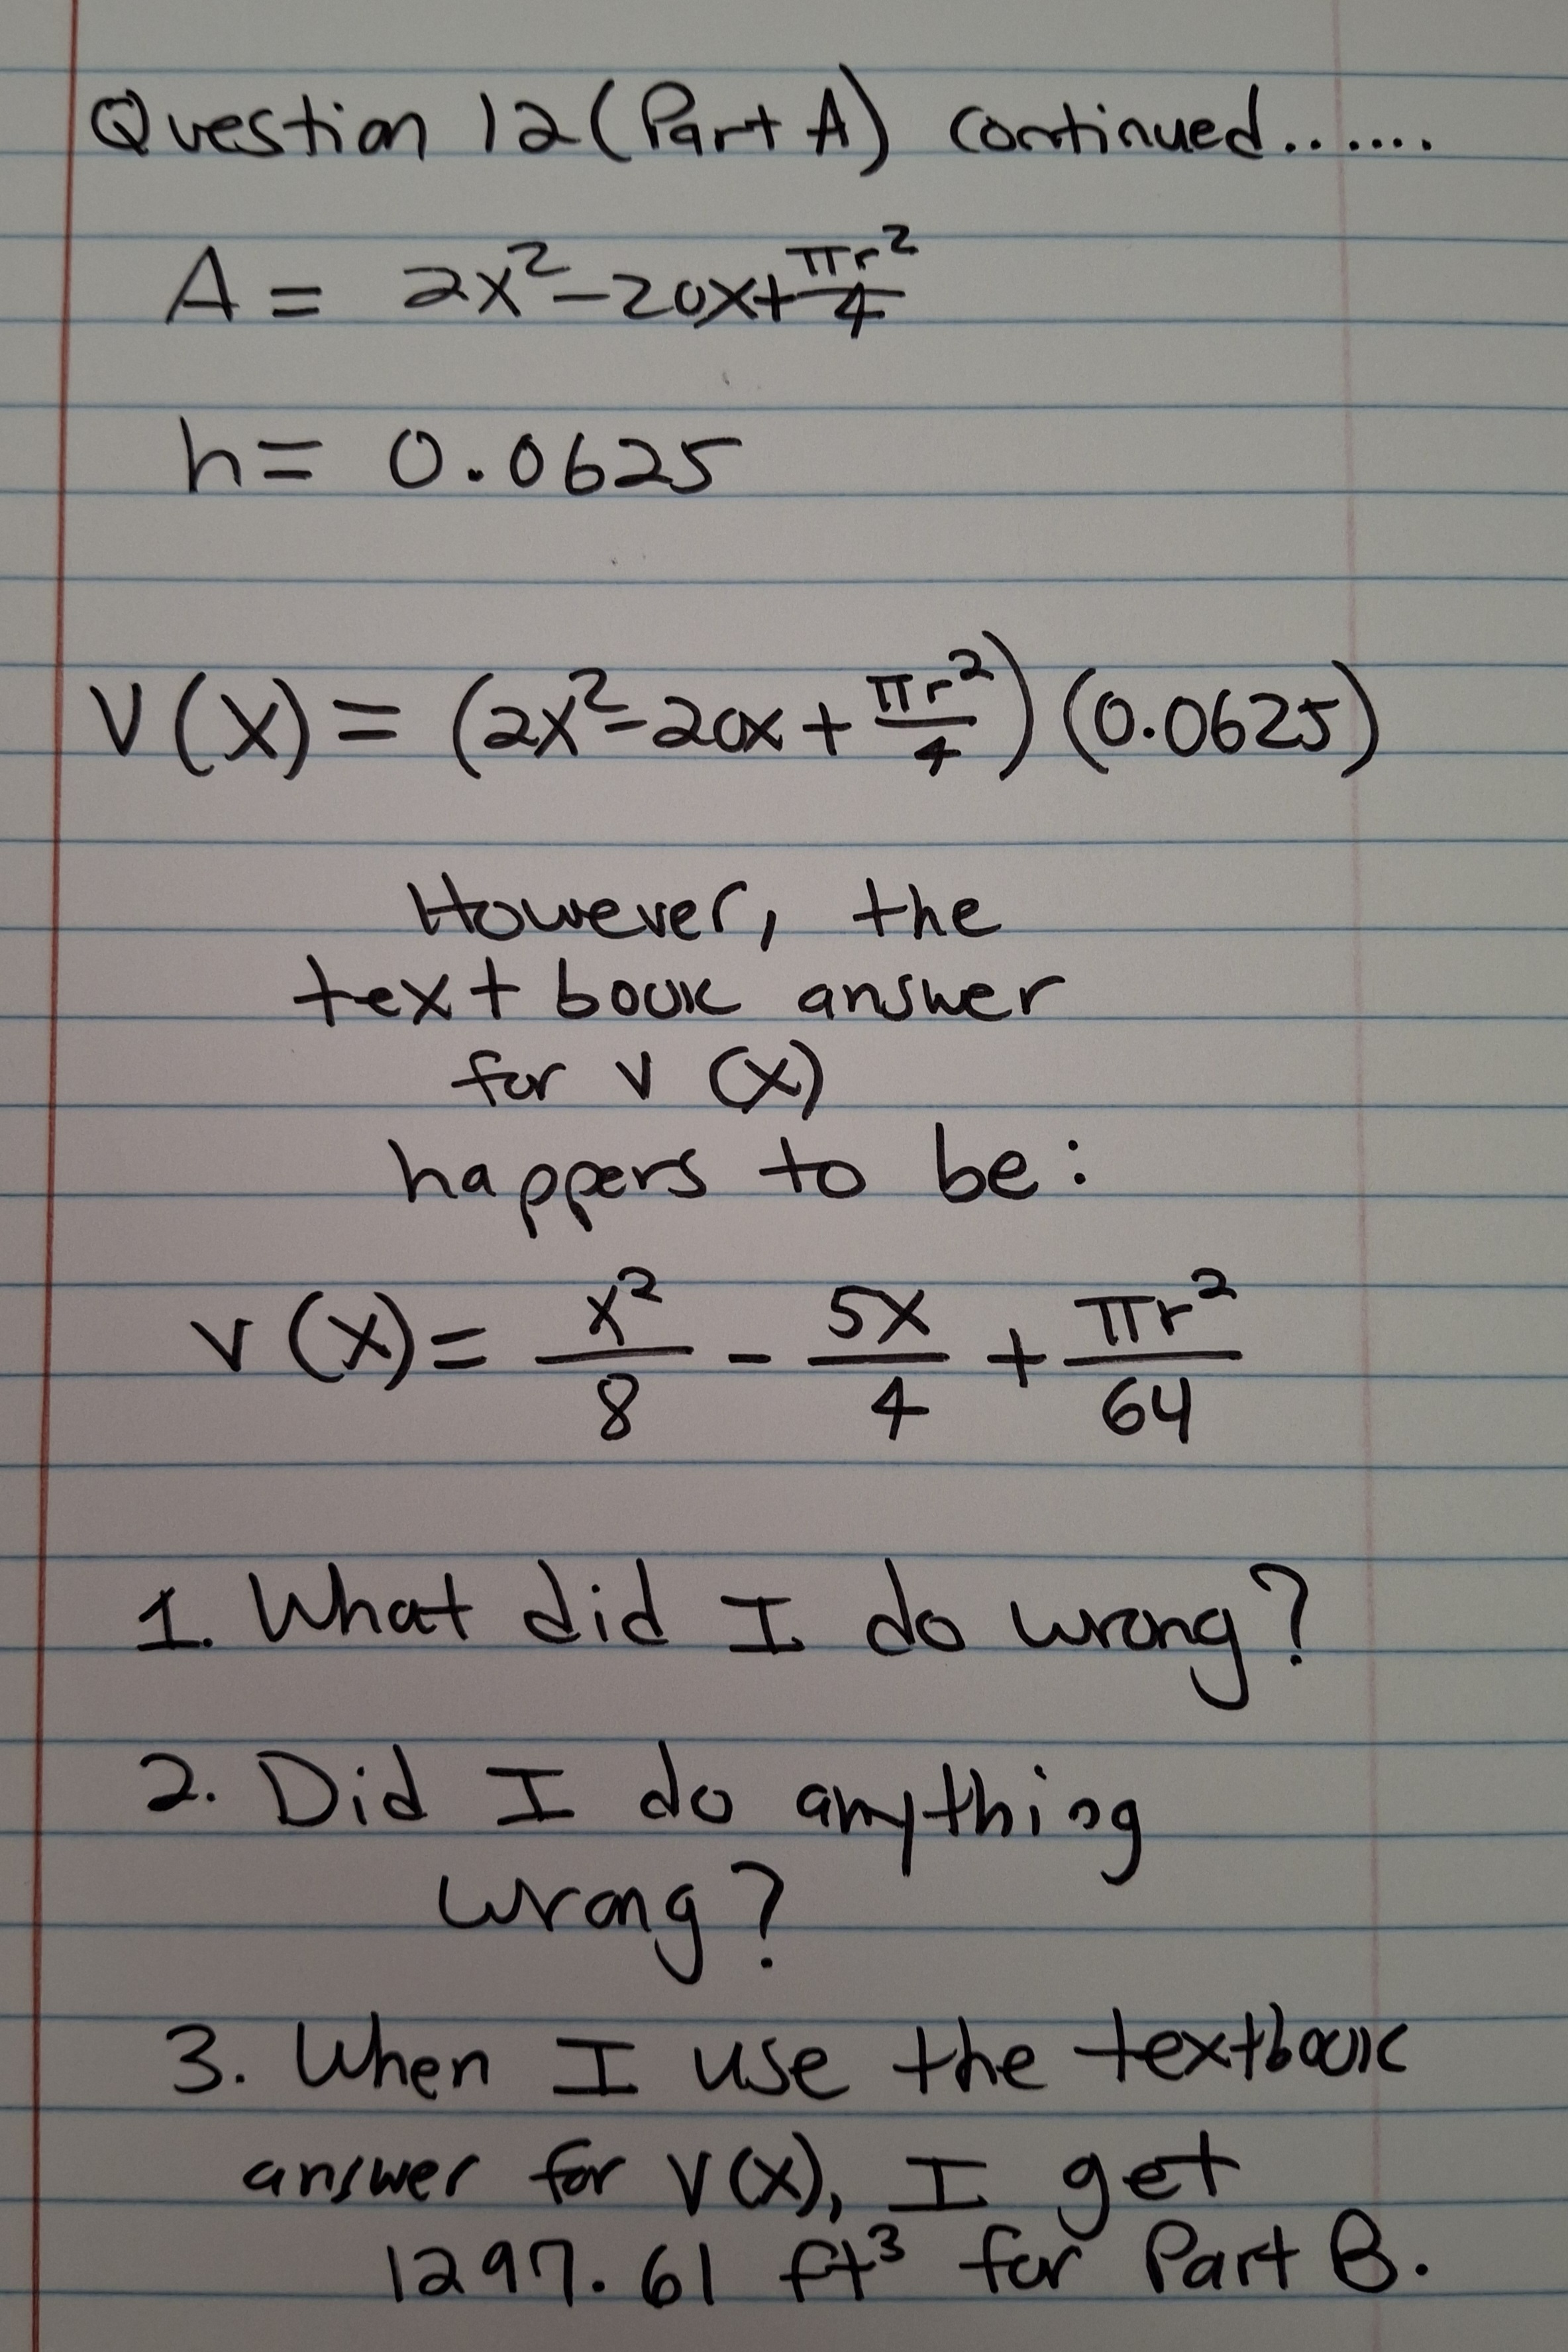 Question 12 (Part A) continued.......
A = 2x² - 20x + πr²/4
h = 0.0625
V(x) = (2x² - 20x + πr²/4)(0.0625)
However, the
textbook answer
for V(x)
happens to be:
V(x) = x²/8 - 5x/4 + πr²/64
1. What did I do wrong?
2. Did I do anything
wrong?
3. When I use the textbook
answer for V(x), I get
1297.61 ft³ for Part B.